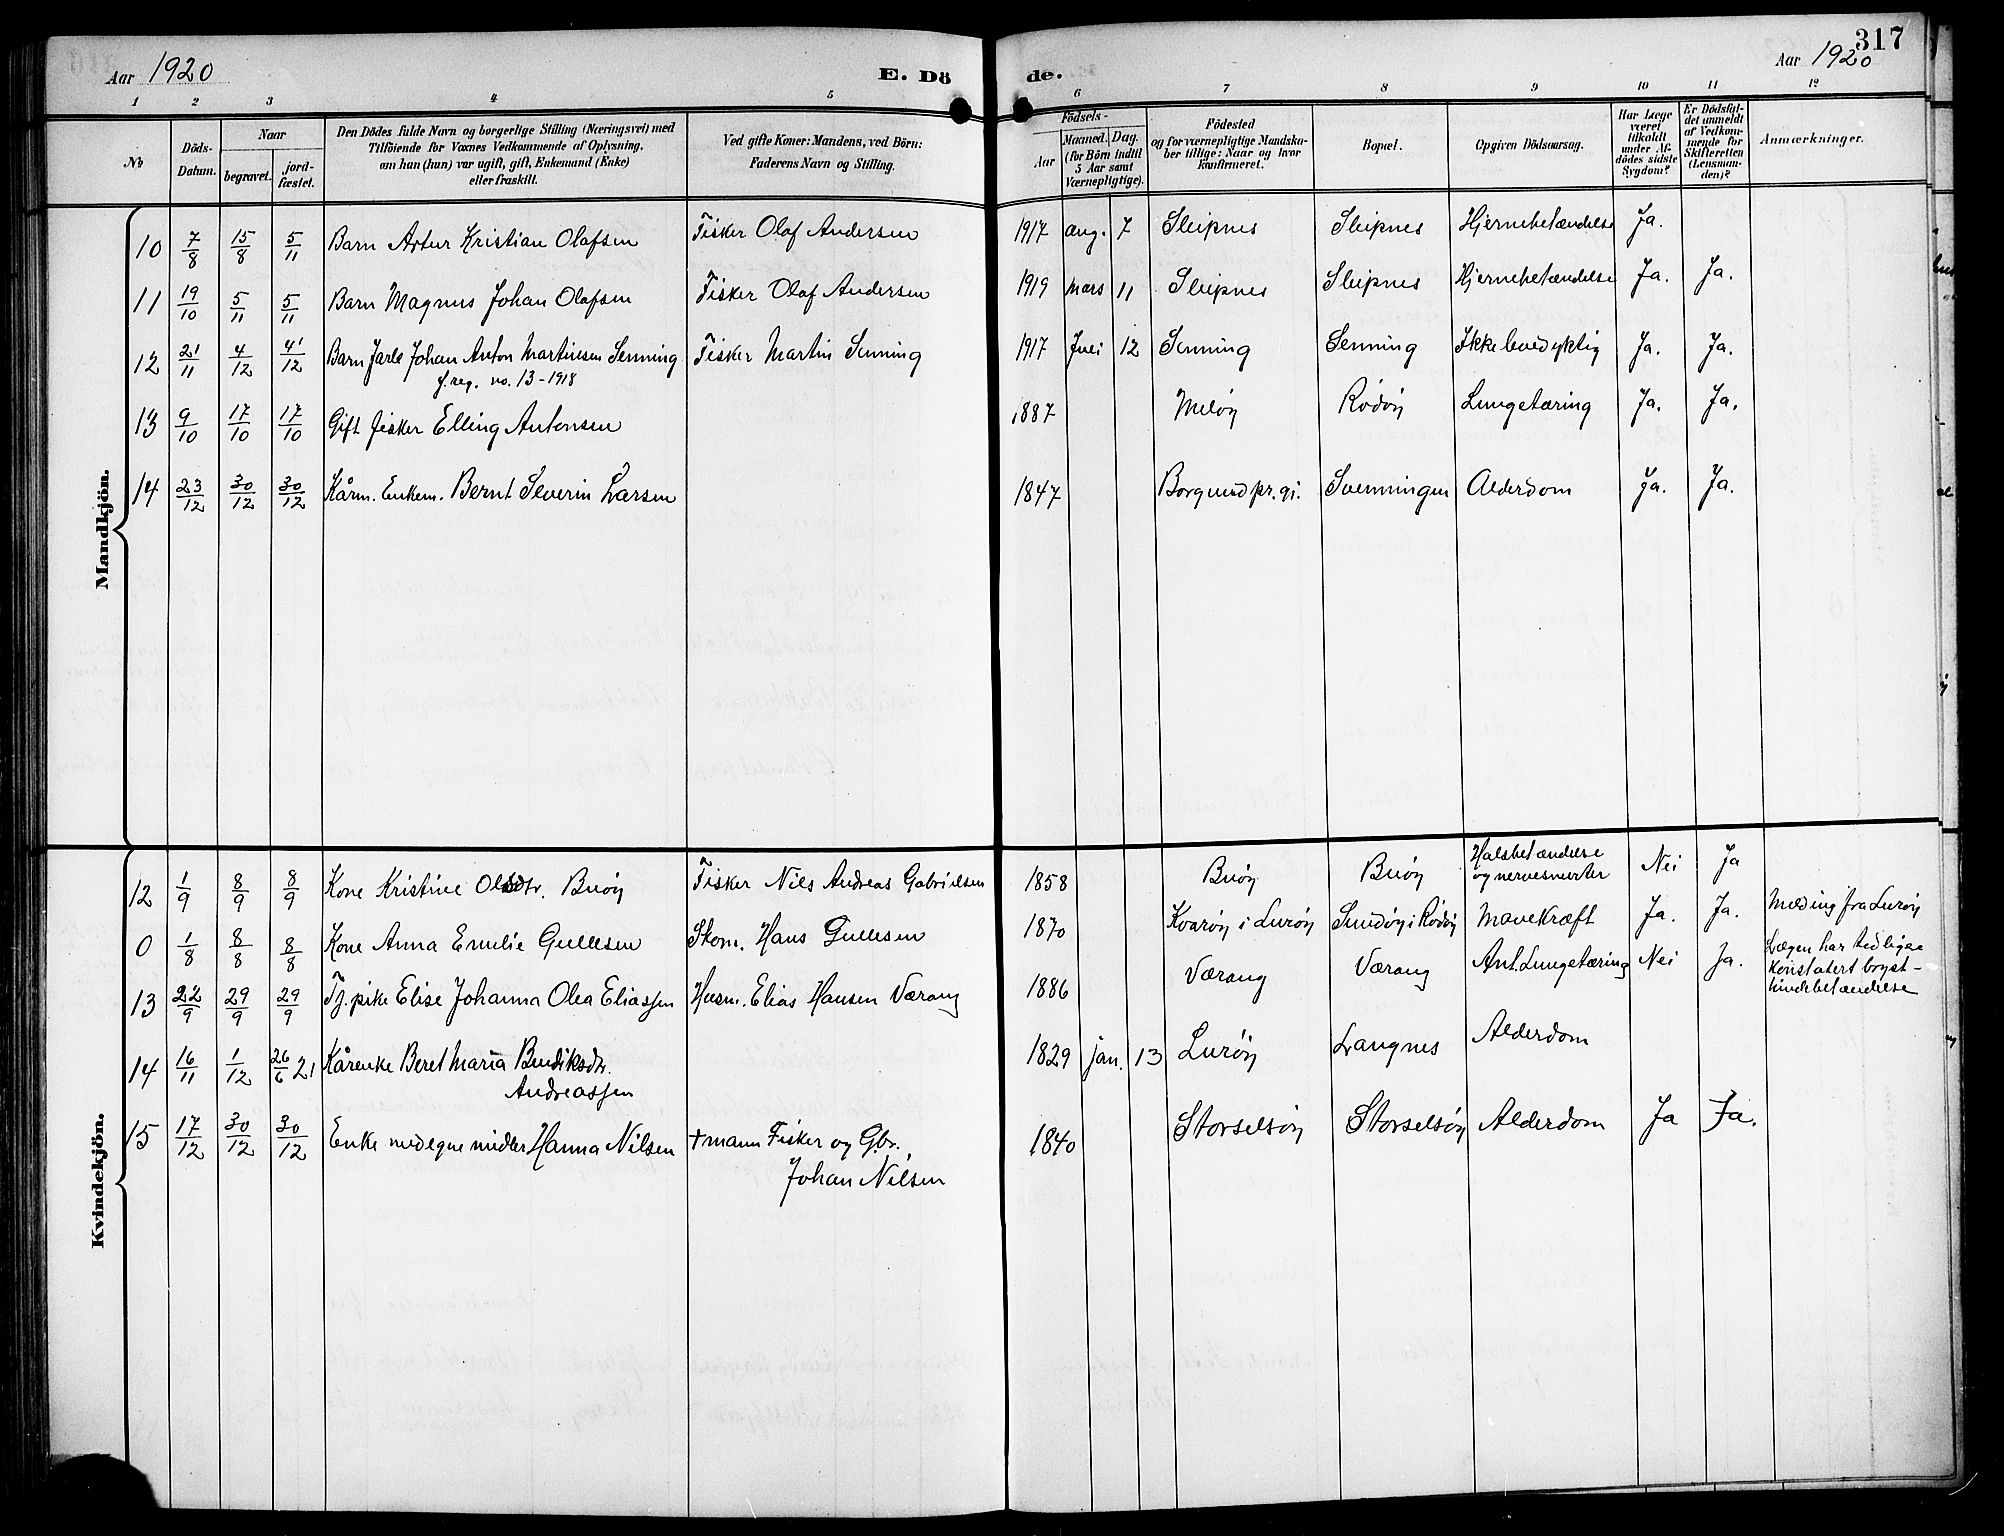 317
Aar 1920
E. Dö
de.
Aar 1920
1 2 3 4 5 6 7 8 9 10 11 12
No
Döds-Datum.
Naar
begravet. jordfæstet.
Den Dödes fulde Navn og borgerlige Stilling (Næringsvei) med
Tilföiende for Voxnes Vedkommende af Oplysning,
om han (hun) var ugift, gift, Enkemand (Enke)
eller fraskilt.
Ved gifte Koner: Mandens, ved Börn:
Faderens Navn og Stilling.
Födsels-
Aar
Maaned. Dag.
(for Börn indtil
5 Aar samt
Værnepligtige).
Födested
og for værnepligtige Mandska-
ber tillige: Naar og hvor
konfirmeret.
Bopæl.
Opgiven Dödsaarsag.
Har Læge
været
tilkaldt
under Af-
dödes sidste
Sygdom?
Er Dödsfal-
det anmeldt
af Vedkom-
mende for
Skifteretten
(Lensman-
den)?
Anmærkninger.
Mandkjön.
10 7/8 15/8 5/11 Barn Artur Kristian Olafsen Fisker Olaf Andersen 1917 aug. 7 Sleipnes Sleipnes Hjernebetændelse Ja.
11 19/10 5/11 5/11 Barn Magnus Johan Olafsen Fisker Olaf Andersen 1919 mars 11 Sleipnes Sleipnes Hjernebetændelse Ja. Ja.
12 21/11 4/12 4/12 Barn Jarle Johan Anton Martinsen Senning Fisker Martin Senning 1917 12 Senning Senning Ja. Ja.
f. reg. no. 13-1918
13 9/10 17/10 17/10 Gift fisker Elling Antonsen 1887 Meløy Rødøy Lungetæring Ja. Ja.
14 23/12 30/12 30/12 Kårm. Enkem. Bernt Severin Larsen 1847 Borgund pr.gj. Svenningen Alderdom Ja. Ja.
Kvindekjön.
12 1/9 8/9 8/9 Kone Kristine Olsdtr. Buøy Fisker Nils Andreas Gabrielsen 1858 Buøy Buøy Halsbetændelse
og nervesmerter Nei Ja
0 1/8 8/8 8/8 Kone Anna Emelie Gullesen Skom. Hans Gullesen 1870 Kvarøy i Lurøy Sundøy i Rødøy Mavekræft Ja. Ja. Melding fra Lurøy
13 22/9 29/9 29/9 Tj.pike Elise Johanna Olea Eliassen Husm. Elias Hansen Værang 1886 Værang Værang Ant. Lungetæring Nei Ja. Lægen har tidligae
konstatert bryst-
hindebetændelse
14 16/11 1/12 26/6 21 Kårenke Beret Maria Bendiksdtr.
Andreassen 1829 jan. 13 Lurøy Langnes Alderdom
15 17/12 30/12 30/12 Enke med egne midler Hanna Nilsen † mann Fisker og Gbr.
Johan Nilsen 1840 Storselsøy Storselsøy Alderdom Ja Ja.